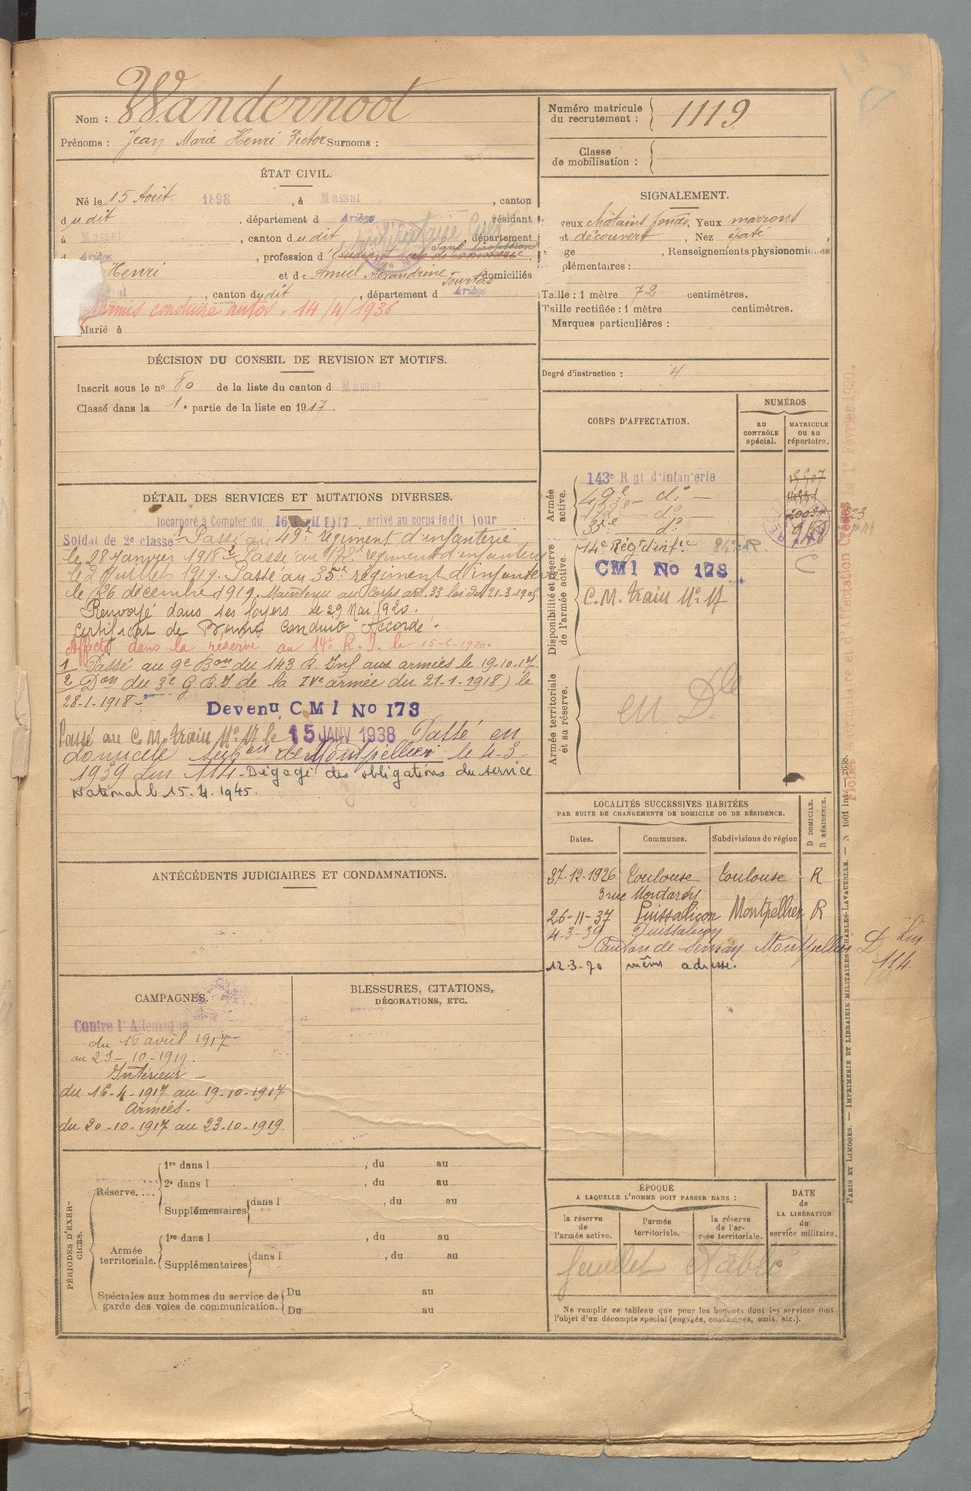 Nom : Wandernoot
Prénoms : Jean Marie Henri Victor Surnoms :
Numéro matricule du recrutement : 1119
Classe de mobilisation :
ÉTAT CIVIL.
Né le 15 Août 1898, à Massat, canton
dudit, département d Ariège résidant
à Massat, canton dudit, département
d Ariège, profession d
Henri et de Amiel Alexandrine domiciliés
, canton dudit, département d Ariège
permis conduire autos. 14/4/1936
Marié à
SIGNALEMENT.
châtains foncés, Yeux marrons
découvert, Nez épaté
Renseignements physionomiques
Taille : 1 mètre 72 centimètres.
Taille rectifiée : 1 mètre centimètres.
Marques particulières :
Degré d'instruction : 4
DÉCISION DU CONSEIL DE REVISION ET MOTIFS.
Inscrit sous le no 80 de la liste du canton d Massat
Classé dans la 1e partie de la liste en 1917.
DÉTAIL DES SERVICES ET MUTATIONS DIVERSES.
Incorporé à Compter du 16 1917, arrivé au corps ledit jour
Soldat de 2e classe 1 Passé au 49e régiment d'infanterie
le 28 janvier 1918 2 Passé au 112e régiment d'infanterie
le 2 juillet 1919. Passé au 35e régiment d'infanterie
le 26 décembre 1919. Maintenu au Corps art. 33 loi du 21-3-1905
Renvoyé dans ses foyers le 29 Mai 1920.
Certificat de Bonne Conduite Accordé.
Affecté dans la réserve au 14e R. I. le 15-6-1920.
1 Passé au 9e Bon du 143 R. Inf aux armées le 19-10-17
2 Don du 3e G.B.I de la IVe armée du 21-1-1918) le
28-1-1918
Devenu CMI No 173
Passé au C. M. train No 17 le 15 JANV 1938 Passé en
domicile subon de Montpellier le 4-3-
1939 Lin 114 - Dégagé des obligations du service
National le 15.4.1945.
CORPS D'AFFECTATION.
NUMÉROS
AU CONTRÔLE spécial.
MATRICULE OU AU répertoire.
Armée active.
143e Rgt d'infanterie
49e - do -
112e - do -
35e do
Disponibilité et réserve de l'armée active.
14e Rég. d'inf.ie
CMI No 173
C. M. train No 17
Armée territoriale et sa réserve.
en Dle
LOCALITÉS SUCCESSIVES HABITÉES
PAR SUITE DE CHANGEMENTS DE DOMICILE OU DE RÉSIDENCE.
Dates. Communes. Subdivisions de région D DOMICILE. R RÉSIDENCE.
27-12-1926 Toulouse Toulouse R
3 rue Montardy
26-11-37 Puissalicon Montpellier R
4-3-39 Puissalicon
Canton de Servian Montpellier D Lin 114
12-3-40 même adresse.
ANTÉCÉDENTS JUDICIAIRES ET CONDAMNATIONS.
CAMPAGNES.
Contre l'Allemagne
du 16 avril 1917
au 23-10-1919.
Intérieur
du 16-4-1917 au 19-10-1917
Armées.
du 20-10-1917 au 23-10-1919.
BLESSURES, CITATIONS, DÉCORATIONS, ETC.
PÉRIODES D'EXERCICES.
Réserve....
1re dans l , du au
2e dans l , du au
Supplémentaires dans l , du au
Armée territoriale.
1re dans l , du au
Supplémentaires dans l , du au
Spéciales aux hommes du service de garde des voies de communication.
Du au
Du au
ÉPOQUE
A LAQUELLE L'HOMME DOIT PASSER DANS :
la réserve de l'armée active.
l'armée territoriale.
la réserve de l'armée territoriale.
DATE de LA LIBÉRATION du service militaire.
feuillet établi
Ne remplir ce tableau que pour les hommes dont les services font
l'objet d'un décompte spécial (engagés, condamnés, omis, etc.).